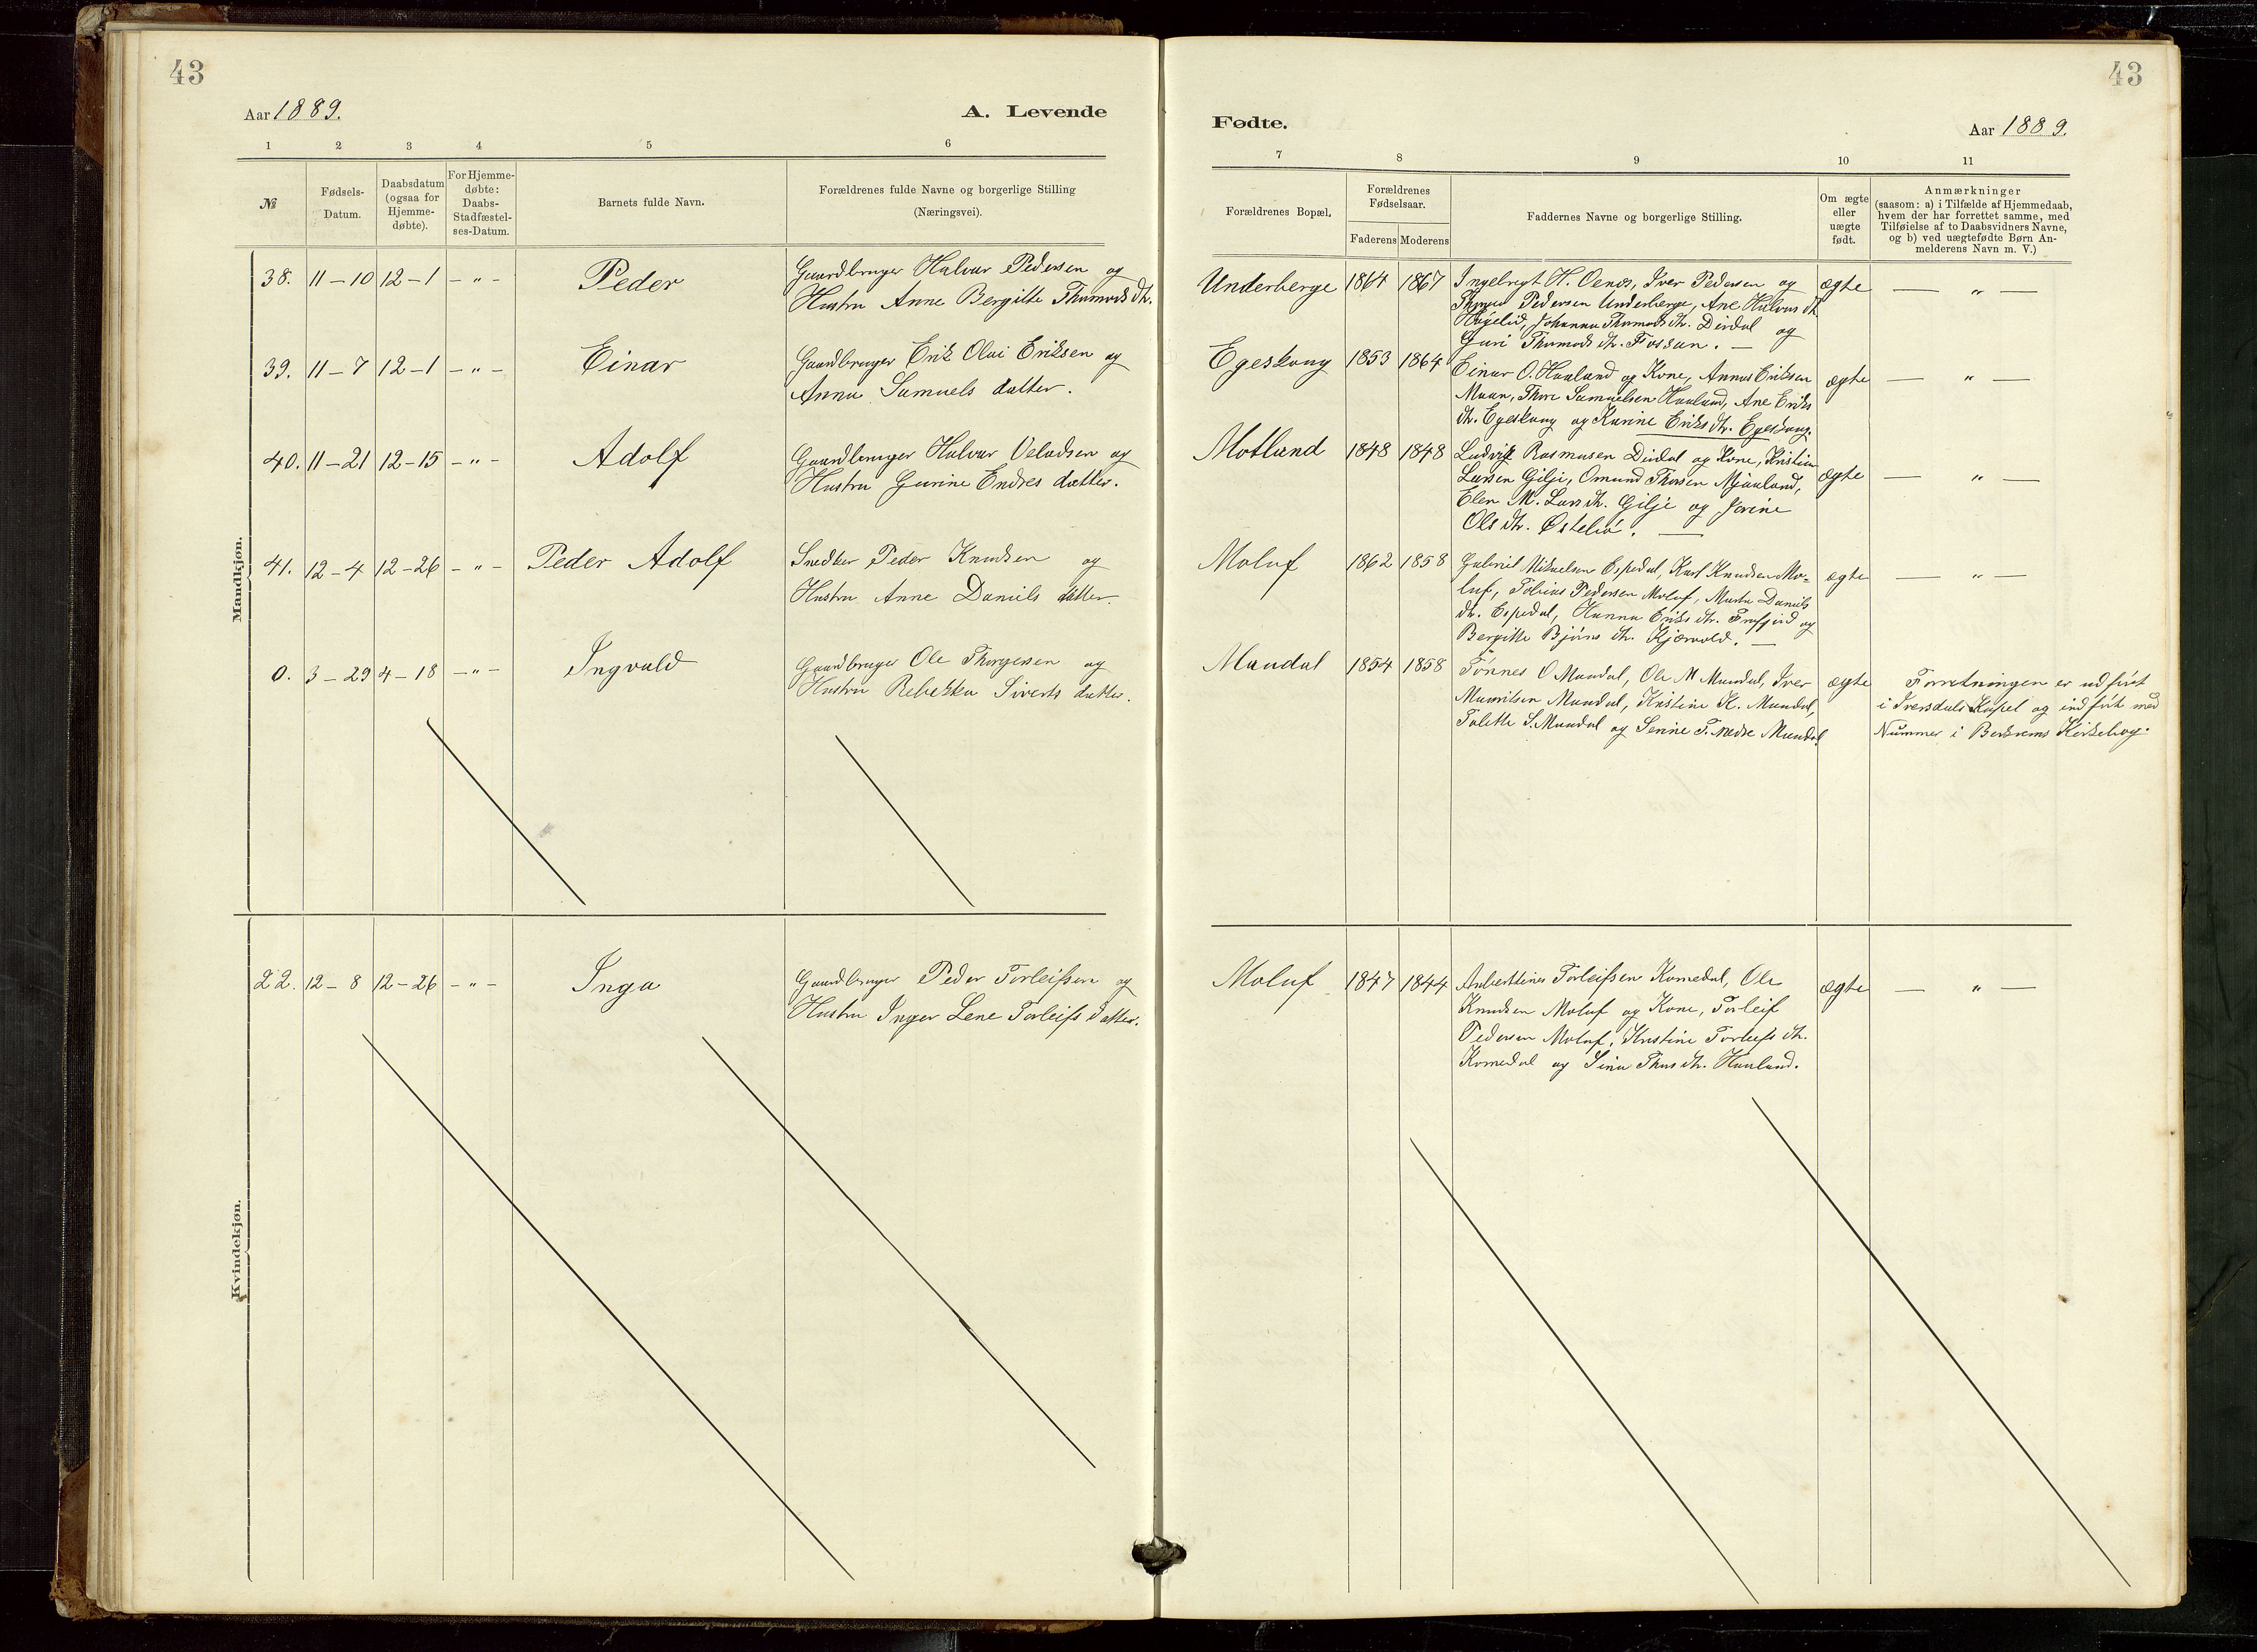 43
Aar 1889.
A. Levende
1 2 3 4 5 6
№
Fødsels-
Datum.
Daabsdatum
(ogsaa for
Hjemme-
døbte).
For Hjemme-
døbte:
Daabs-
Stadfæstel-
ses-Datum.
Barnets fulde Navn.
Forældrenes fulde Navne og borgerlige Stilling
(Næringsvei).
Mandkjøn.
38. 11-10 12-1 - " - Peder Gaardbruger Halvar Pedersen og
Hustru Anne Bergitte Thormods dtr.
39. 11-7 12-1 - " - Einar Gaardbruger Erik Olai Eriksen og
Anna Samuels datter.
40. 11-21 12-15 - " - Adolf Gaardbruger Halvar Veladsen og
Hustru Gurine Endres datter.
41. 12-4 12-26 - " - Peder Adolf Snedker Peder Knudsen og
Hustru Anne Daniels datter.
0. 3-29 4-18 - " - Ingvald Gaardbruger Ole Thorgersen og
Hustru Rebekka Siverts datter.
Kvindekjøn.
22. 12-8 12-26 - " - Inga Gaardbruger Peder Torleifsen og
Hustru Inger Lene Torleifs datter.
43
Fødte.
Aar 1889.
7 8 9 10 11
Forældrenes Bopæl.
Forældrenes
Fødselsaar.
Faderens Moderens
Faddernes Navne og borgerlige Stilling.
Om ægte
eller
uægte
født.
Anmærkninger
(saasom: a) i Tilfælde af Hjemmedaab,
hvem der har forrettet samme, med
Tilføielse af to Daabsvidners Navne,
og b) ved uægtefødte Børn An-
melderens Navn m. V.)
Underberge 1864 1867 Ingebregt H. Oenes, Iver Pedersen og ægte — " —
Pedersen Underberge, Ane Halvars dtr.
Høgelid, Johanna Thormods dtr. Dirdal og
Guri Thormods dtr. Fossan. —
Egeskaug 1853 1864 Einar O. Haaland og Kone, Annus Eriksen ægte — " —
Maan, Thore Samuelsen Haaland, Ane Eriks
dtr. Egeskaug og Karine Eriks dtr. Egeskaug.
Motland 1848 1848 Ludvik Rasmusen Dirdal og Kone, Kristian ægte — " —
Larsen Gilje, Omund Thorsen Mjaaland,
Elen M. Lars dtr. Gilje og Jorine
Ols dtr. Østeliø. —
Moluf 1862 1858 Gabriel Mikaelsen Espedal, Karl Knudsen Mo- ægte — " —
luf, Tobias Pedersen Moluf, Marta Daniels
dtr. Espedal, Hanna Eriks dtr. Frafjord og
Bergitte Bjørns dtr. Kjærvold. —
Maudal 1854 1858 Tønnes O Maudal, Ole M Maudal, Iver ægte Forretningen er udført
Mauritsen Maudal, Kristine K. Maudal, i Iversdals Kapel og indført med
Talette S. Maudal og Senine T. Nedre Maudal Nummer i Berkrems Kirkebog.
Moluf 1847 1844 Anbertinus Torleifsen Komedal, Ole ægte — " —
Knudsen Moluf og Kone, Torleif
Pedersen Moluf, Kristine Torleifs dtr.
Komedal og Sina Thors dtr. Haaland.